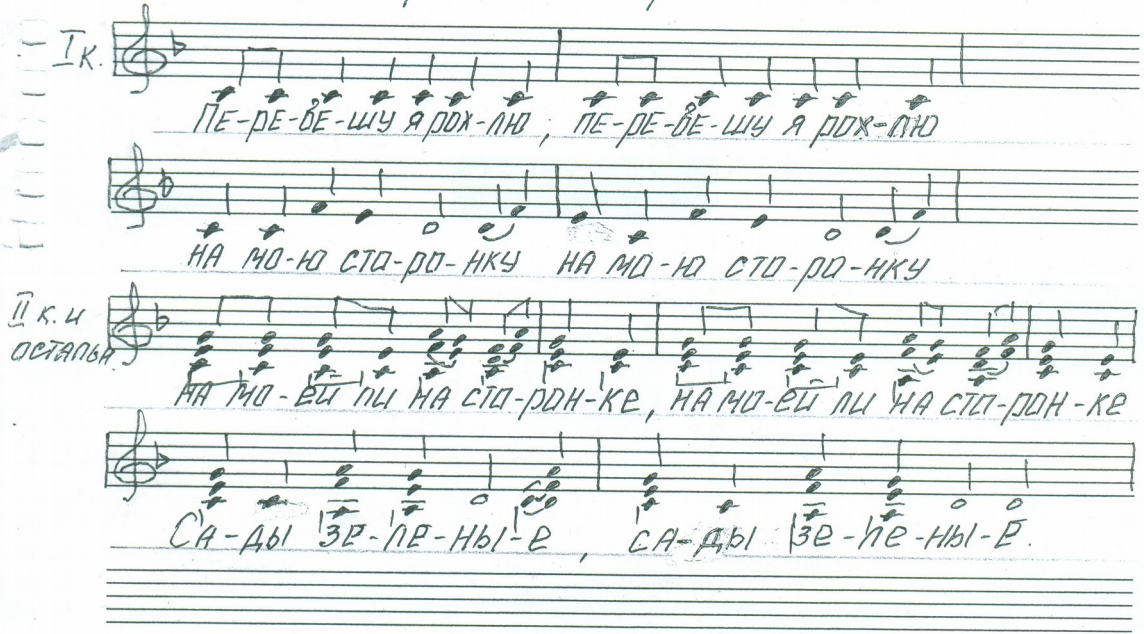 I к.
ПЕ-РЕ-ВЕ-ШУ Я РОХ-ЛЮ, ПЕ-РЕ-ВЕ-ШУ Я РОХ-ЛЮ
НА МО-Ю СТО-РО-НКУ НА МО-Ю СТО-РО-НКУ
II к. и
ОСТАЛЬН.
НА МО-ЕЙ ЛИ НА СТО-РОН-КЕ, НА МО-ЕЙ ЛИ НА СТО-РОН-КЕ
СА-ДЫ ЗЕ-ЛЕ-НЫ-Е, СА-ДЫ ЗЕ-ЛЕ-НЫ-Е.